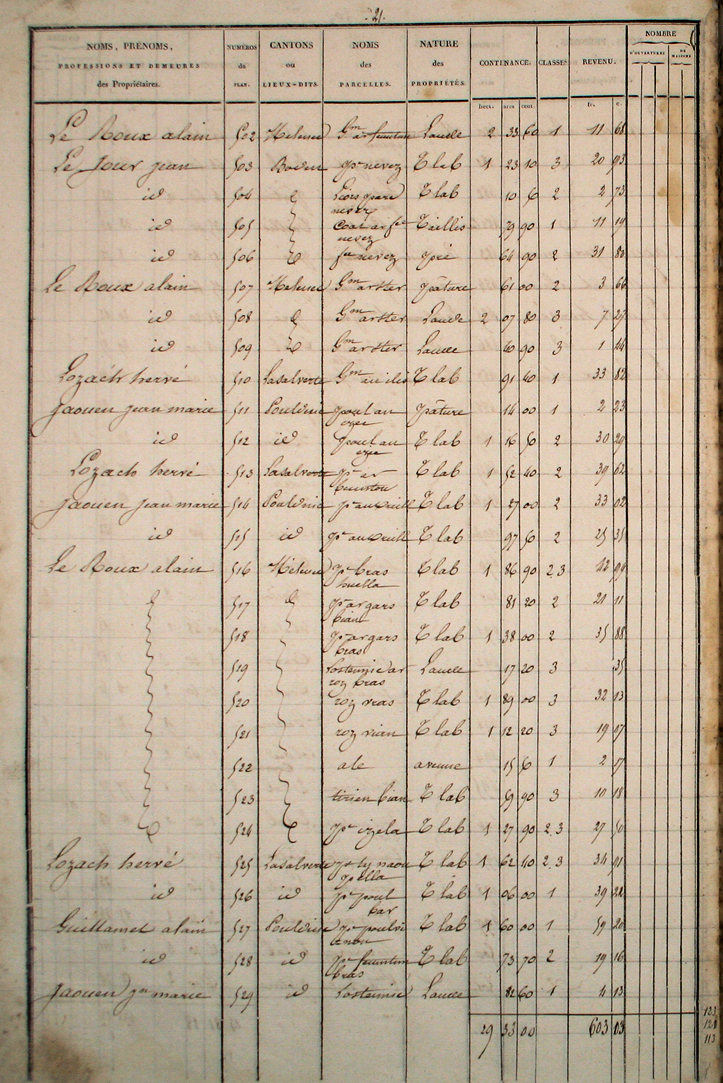 21.
NOMS, PRÉNOMS, PROFESSIONS ET DEMEURES des Propriétaires. NUMÉROS du PLAN. CANTONS ou LIEUX-DITS. NOMS des PARCELLES. NATURE des PROPRIÉTÉS. CONTENANCE. CLASSES. REVENU. NOMBRE D'OUVERTURES DE MAISONS
hect. ares cent. fr. c.
Le Roux alain 502 Gm ar feunteun Lande 2 33 60 1 11 68
Le Jour jean 503 Boden pc nevez T lab 1 23 10 3 20 93
id 504 Liors parc nevez T lab 10 50 2 2 73
id 505 Coat ar fc nevez Taillis 79 90 1 11 19
id 506 fc nevez pré 64 90 2 31 80
Le Roux alain 507 Gm arster pâture 61 00 2 3 66
id 508 Gm arster Lande 2 07 80 3 7 27
id 509 Gm arster Lande 60 90 3 1
Lozach hervé 510 Lasalverte Gm an ilis T lab 91 60 1 33 82
jaouen jean marie 511 poul an pâture 14 00 1 2 23
id 512 id poul an T lab 1 16 50 2 30 29
Lozach hervé 513 Lasalverte pc ar T lab 1 52 40 2 39 62
jaouen jean marie 514 T lab 1 27 00 2 33 02
id 515 id T lab 97 50 2 25 35
Le Roux alain 516 pc bras huella T lab 1 86 90 2.3
517 pc ar gars bian T lab 81 20 2 21 11
518 pc ar gars bras T lab 1 38 00 2 35 88
519 Losteunic ar roz bras Lande 17 20 3 35
520 roz vras T lab 1 89 00 3 32 13
521 roz vian T lab 1 12 20 3 19 07
522 ale avenue 15 50 1 2 17
523 tirien bian T lab 59 90 3 10 18
524 pc izela T lab 1 27 90 2.3 27 50
Lozach hervé 525 Lasalverte pc ty naou T lab 1 62 40 2.3 34 91
id 526 id pc poul bar T lab 1 06 00 1 39 22
Guillamet alain 527 T lab 1 60 00 1 59 20
id 528 id pc feunteun bras T lab 73 70 2 19 16
jaouen jn marie 529 id Losteunic Lande 82 60 1 4 13
29 33 00 603 03